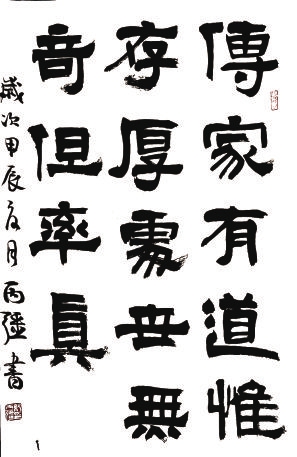 傳家有道惟
存厚處世無
奇但率眞
歲次甲辰夏月丙書